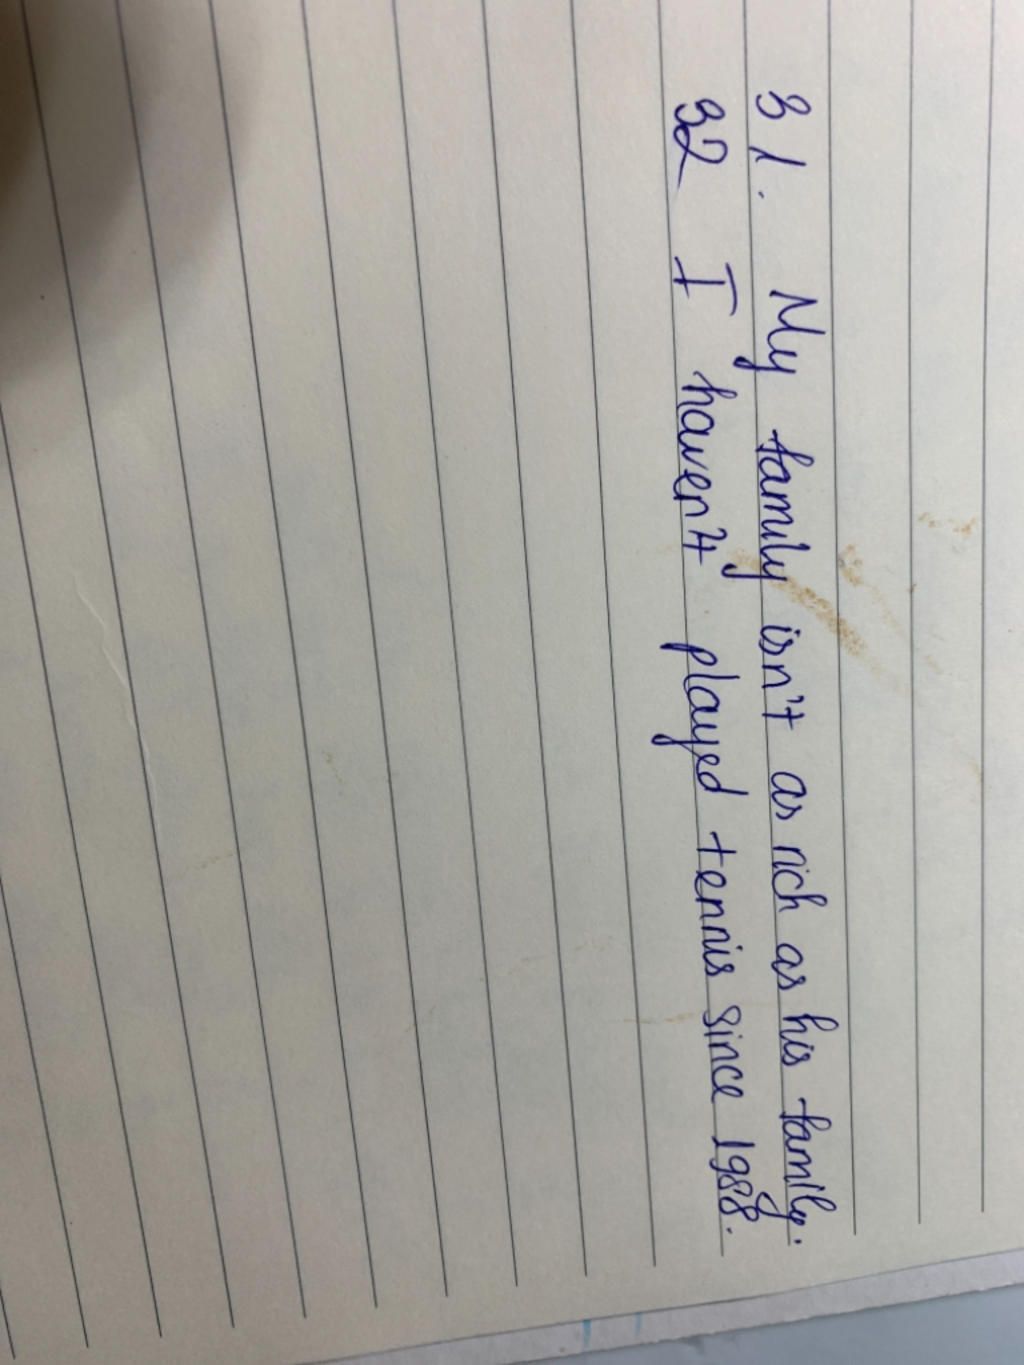 31. My family isn't as rich as his family.
32 I haven't played tennis since 1988.